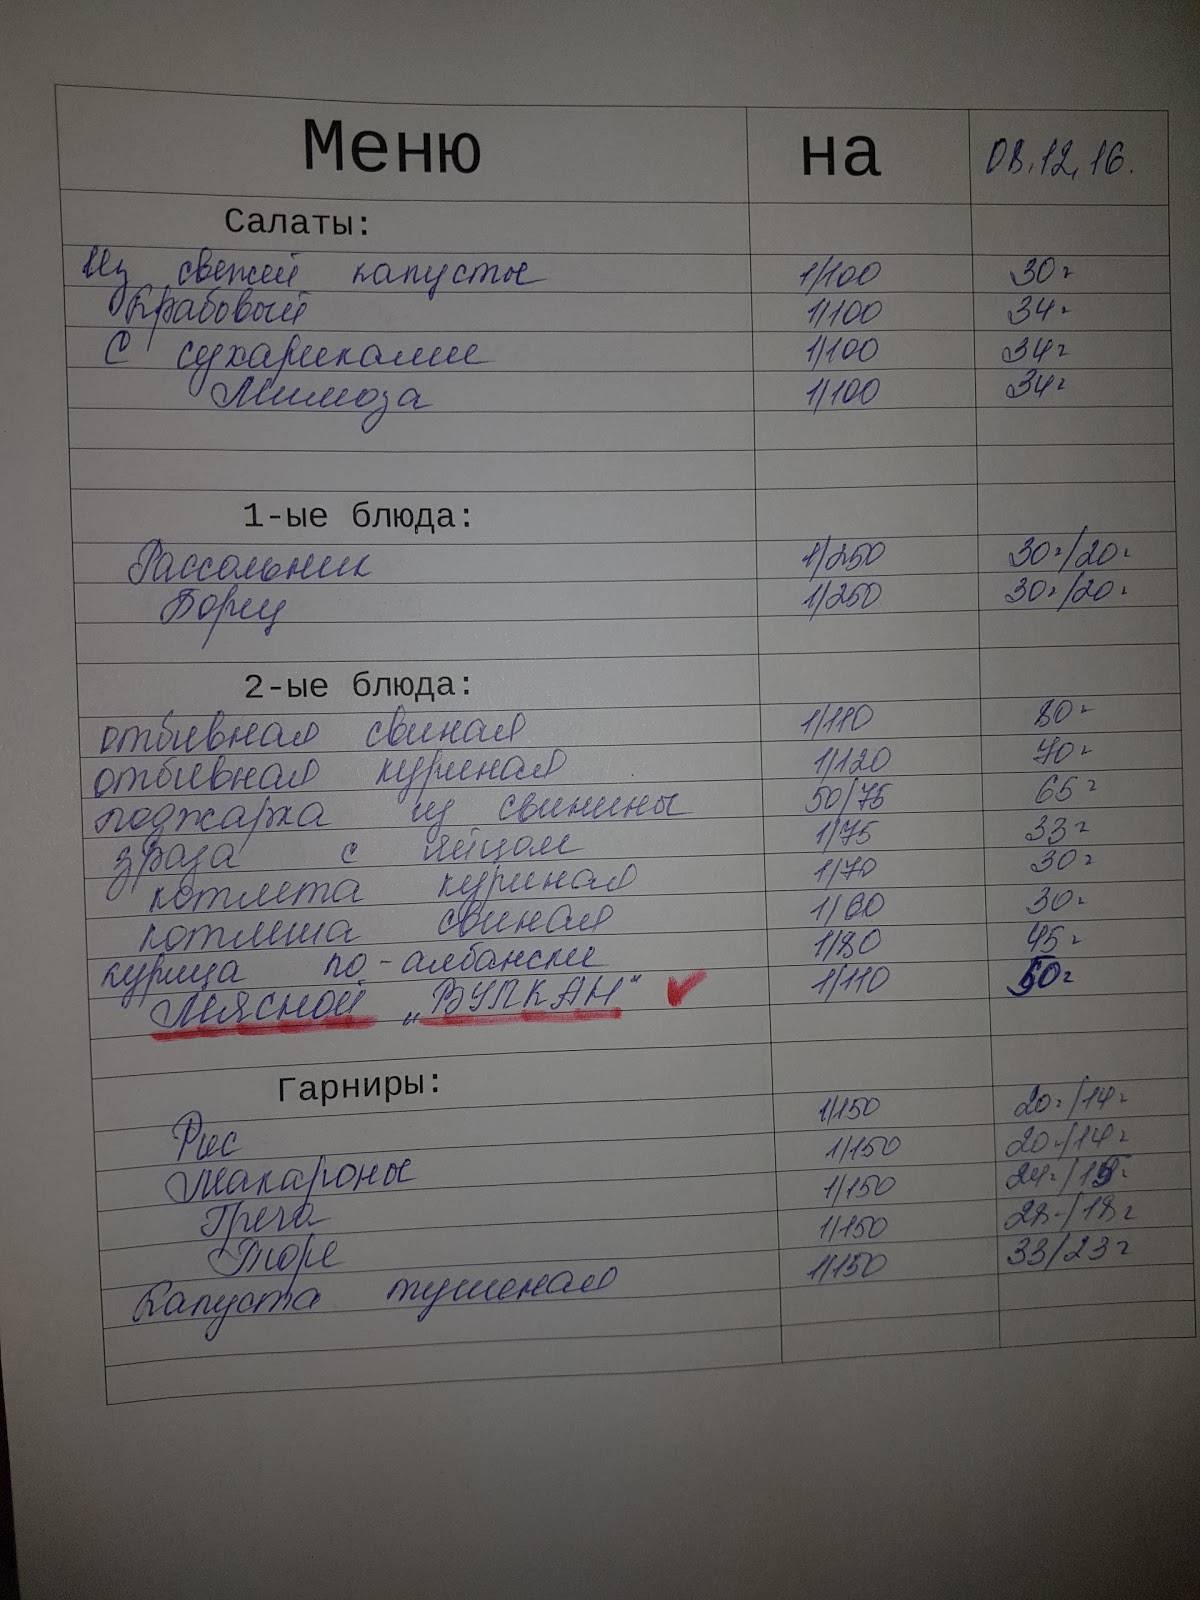 Меню на 08.12.16.
Салаты:
Из свежей капусты 1/100 30г
Крабовый 1/100 34г
С сухариками 1/100 34г
Мимоза 1/100 34г
1-ые блюда:
Рассольник 1/250 30г/20г
Борщ 1/250 30г/20г
2-ые блюда:
отбивная свиная 1/110 80г
отбивная куриная 1/120 70г
поджарка из свинины 50/75 65г
зраза с яйцом 1/75 33г
котлета куриная 1/70 30г
котлета свиная 1/60 30г
курица по-албански 1/80 45г
Мясной „ВУЛКАН" 1/110 50г
Гарниры:
Рис 1/150 20г/14г
Макароны 1/150 20г/14г
Греча 1/150 24г/15г
Пюре 1/150 28г/18г
Капуста тушеная 1/150 33/23г